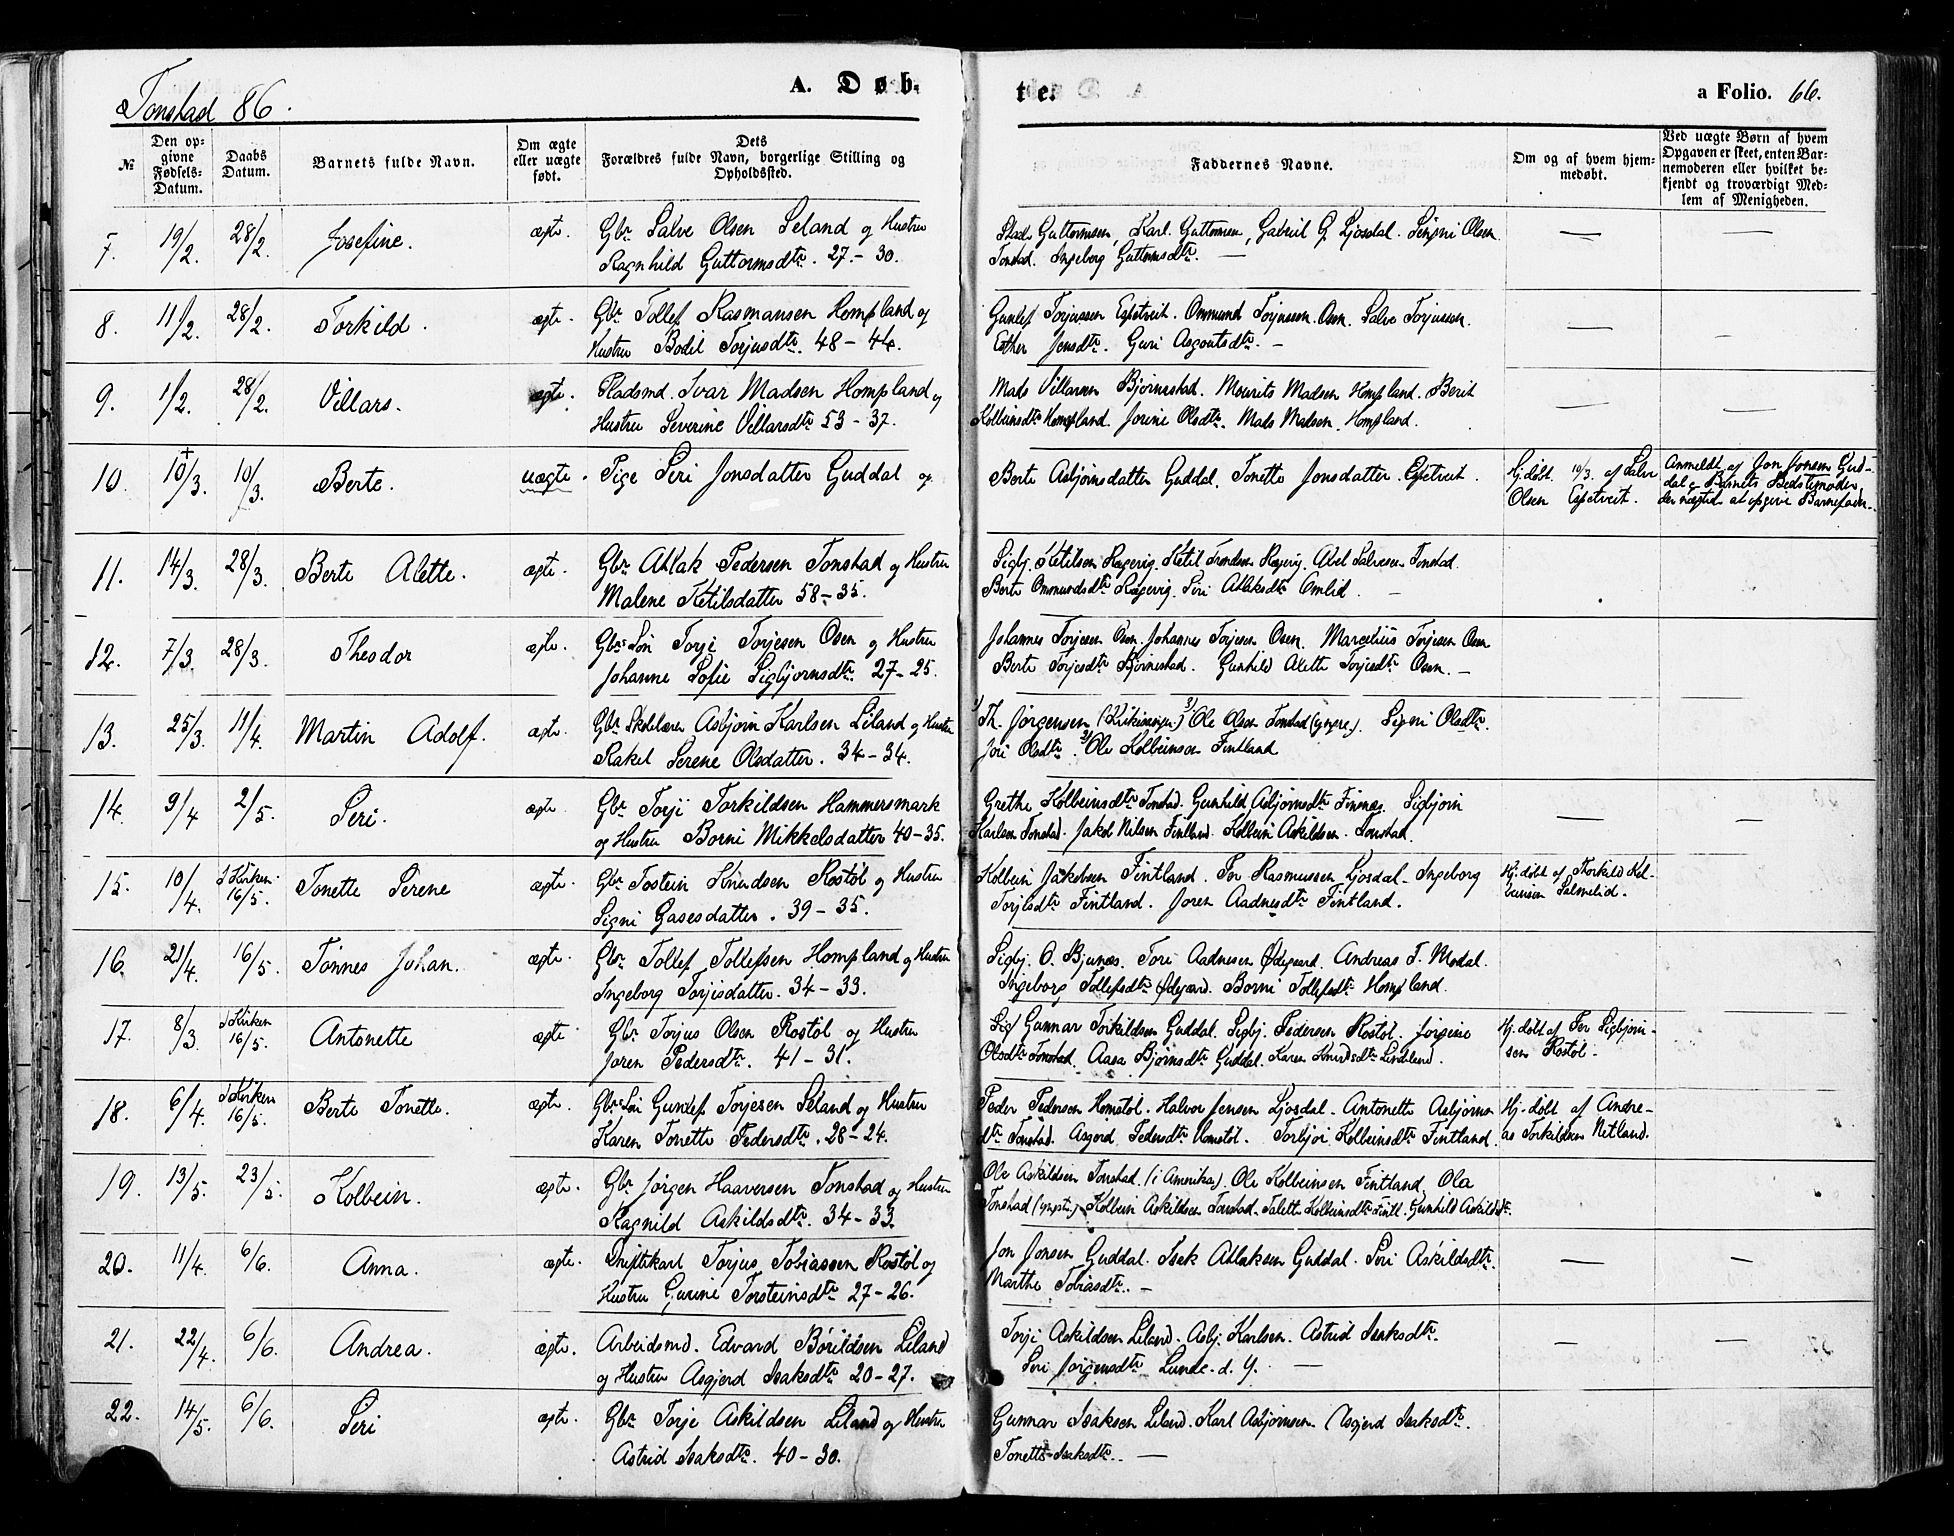 Tonstad 86.
A. Døb-
te.
a Folio. 66.
№
Den op-
givne
Fødsels-
Datum.
Daabs
Datum.
Barnets fulde Navn.
Om ægte
eller uægte
født.
Dets
Forældres fulde Navn, borgerlige Stilling og
Opholdssted.
Faddernes Navne.
Om og af hvem hjem-
medøbt.
Ved uægte Børn af hvem
Opgaven er skeet, enten Bar-
nemoderen eller hvilket be-
kjendt og troværdigt Med-
lem af Menigheden.
7. 19/2. 28/2. Josefine. ægte. Gbr. Salve Olsen Seland og Hustru
Ragnhild Guttormsdtr. 27.-30.
Guttormsen, Karl Guttormsen, Gabriel G. Ljosdal. Signi Olsen
Tonstad. Ingeborg Guttormsdtr. —
— —
8. 11/2. 28/2. Torkild. ægte. Gbr. Tollef Rasmussen Hompland og
Hustru Bodil Torjusdtr. 48-44.
Gunlef Torjussen Espetveit. Ommund Torjussen Osen. Salve Torjussen.
Esther Jensdtr. Guri Asgoutsdtr. —
— —
9. 1/2. 28/2. Villars. ægte. Pladsmd. Ivar Madsen Hompland og
Hustru Severine Villarsdtr 53-37.
Mads Villarsen Bjørnestad. Mourits Madsen Hompland. Berit
Kolbeinsdtr Hompland. Jorine Olsdtr. Mads Madsen. Hompland.
— —
10. + 10/3. 10/3. Berte. uægte. Pige Seri Jonsdatter Guddal og
Berte Asbjørnsdatter Guddal. Tonette Jonsdatter. Espetveit.
Hj.døbt 10/3. af Salve
Olsen Espetveit.
Anmeldt af Jon Jonsen Gud-
dal & Barnets Bedstemoder,
der nægted at opgive Barnefader.
11. 14/3. 28/3. Berte Alette. ægte. Gbr. Atlak Pedersen Tonstad og Hustru
Malene Ketilsdatter 58-35.
Sigbj. Ketilsen Rægevig. Ketil Tronsen Rægevig. Abel Salvesen Tonstad.
Berte Ommundsdtr Rægevig. Siri Atlaksdtr Omlid. —
12. 7/3. 28/3. Theodor ægte. Gbr. Søn Torje Torjesen Osen og Hustru
Johanne Sofie Sigbjørnsdtr. 27-25.
Johannes Torjesen Osen. Johannes Torjesen Osen. Marcelius Torjesen Osen
Berte Torjesdtr Bjørnestad. Gunhild Alette Torjesdtr Osen. —
13. 25/3. 11/4. Martin Adolf. ægte. Gbr. Skolelærer Asbjørn Karlsen Liland og Hustru
Rakel Serene Olsdatter. 34-34.
1/ Th. Jørgensen 2/ Ole Olsen Tonstad (yngre). Signi Olsdtr.
Jori Olsdtr. 3/ Ole Kolbeinsen Fintland
14. 9/4 2/5. Seri. ægte. Gbr. Torje Torkildsen Hammersmark
og Hustru Borni Mikkelsdatter 40-35.
Grethe Kolbeinsdtr Tonstad. Gunhild Asbjørnsdtr Finnes. Sigbjørn
Karlsen Tonstad. Jakob Nilsen Fintland. Kolbein Askildsen. Tonstad.
— —
15. 10/4. I Kirken 16/5. Tonette Serene ægte. Gbr. Tostein Knudsen Rostøl og Hustru
Signi Gasesdatter. 39-35.
Kolbein Jakobsen Fintland. Per Rasmussen Ljosdal. Ingeborg
Torjesdtr Fintland. Joren Aadnesdtr Fintland.
Hj. døbt af Thorkild Kol-
beinsen Salmelid.
16. 21/4. 16/5. Tønnes Johan. ægte. Gbr. Tollef Tollefsen Hompland og Hustru
Ingeborg Torjisdatter. 34-33.
Sigbj. O. Bjunes. Tore Aadnesen Ødegaard. Andreas T. Modal.
Ingeborg Tollefsdtr Ødegaard. Borni Tollefsdtr Hompland.
17. 8/3. I Kirken 16/5. Antonette ægte Gbr. Torjus Olsen Rostøl og Hustru
Joren Pedersdtr. 41-31.
Gunnar Torkildsen Guddal. Sigbj. Pedersen Rostøl. Jorgine
Olsdtr Tonstad. Aasa Bjørnsdtr Guddal. Karen Knudsdtr Lindeland.
Hj. døbt af Per Sigbjørn-
sen Rostøl.
18. 6/4. I Kirken 16/5. Berte Tonette. ægte. Gbr. Søn Gunlef Torjesen Seland og Hustru
Karen Tonette Pedersdtr. 28-24.
Peder Pedersen Homstøl. Halvor Jensen Ljosdal. Antonette Asbjørns-
dtr Tonstad. Asgerd Pedersdtr Homstøl. Torbjør Kolbeinsdtr Fintland.
Hj. døbt af Andre-
as Torkildsen Netland.
19. 13/5. 23/5. Kolbein. ægte. Gbr. Jørgen Haaversen Tonstad og Hustru
Ragnild Askildsdtr. 34-33.
Ole Askildsen Tonstad. (i Amerika). Ole Kolbeinsen Fintland, Ola
Tonstad (yngste). Kolbein Askildsen Tonstad. Salette Kolbeinsdtr Fintl. Gunhild Askildsdtr.
20. 11/4. 6/6. Anna. ægte. Driftekarl Torjus Tobiassen Rostøl og
Hustru Gurine Torsteinsdtr 27-26.
Jon Jonsen Guddal. Isak Atlaksen Guddal. Seri Askildsdtr.
Marthe Tobiasdtr. —
— —
21. 22/4. 6/6. Andrea. ægte. Arbeidsmd. Edvard Børildsen Liland
og Hustru Asgjerd Isaksdtr 20-27.
Torje Askildsen Liland. Asbj. Karlsen. Astrid Isaksdtr.
Seri Jørgensdtr Lunde. d. y. —
— —
22. 14/5. 6/6. Seri ægte. Gbr. Torje Askildsen Liland og Hustru
Astrid Isaksdtr. 40-30.
Gunnar Isaksen Liland. Karl Asbjørnsen. Asgjerd Isaksdtr.
Tonette Isaksdtr. —